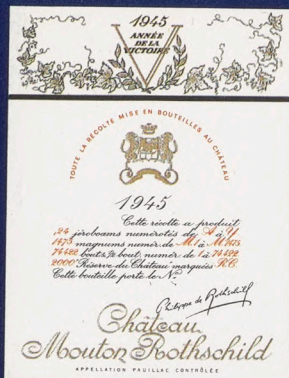 1945
ANNÉE
DE LA
VICTOIRE
TOUTE LA RÉCOLTE MISE EN BOUTEILLES AU CHÂTEAU
1945
Cette récolte a produit
24 jéroboams numérotés de A à Y
1475 magnums numér. de M.1 à M.1475
74422 bouts. ½ bout. numér. de 1 à 74422
2000 "Réserve du Château" marquées R.C.
Cette bouteille porte le N°
Philippe de Rothschild
Château
Mouton Rothschild
APPELLATION PAUILLAC CONTRÔLÉE